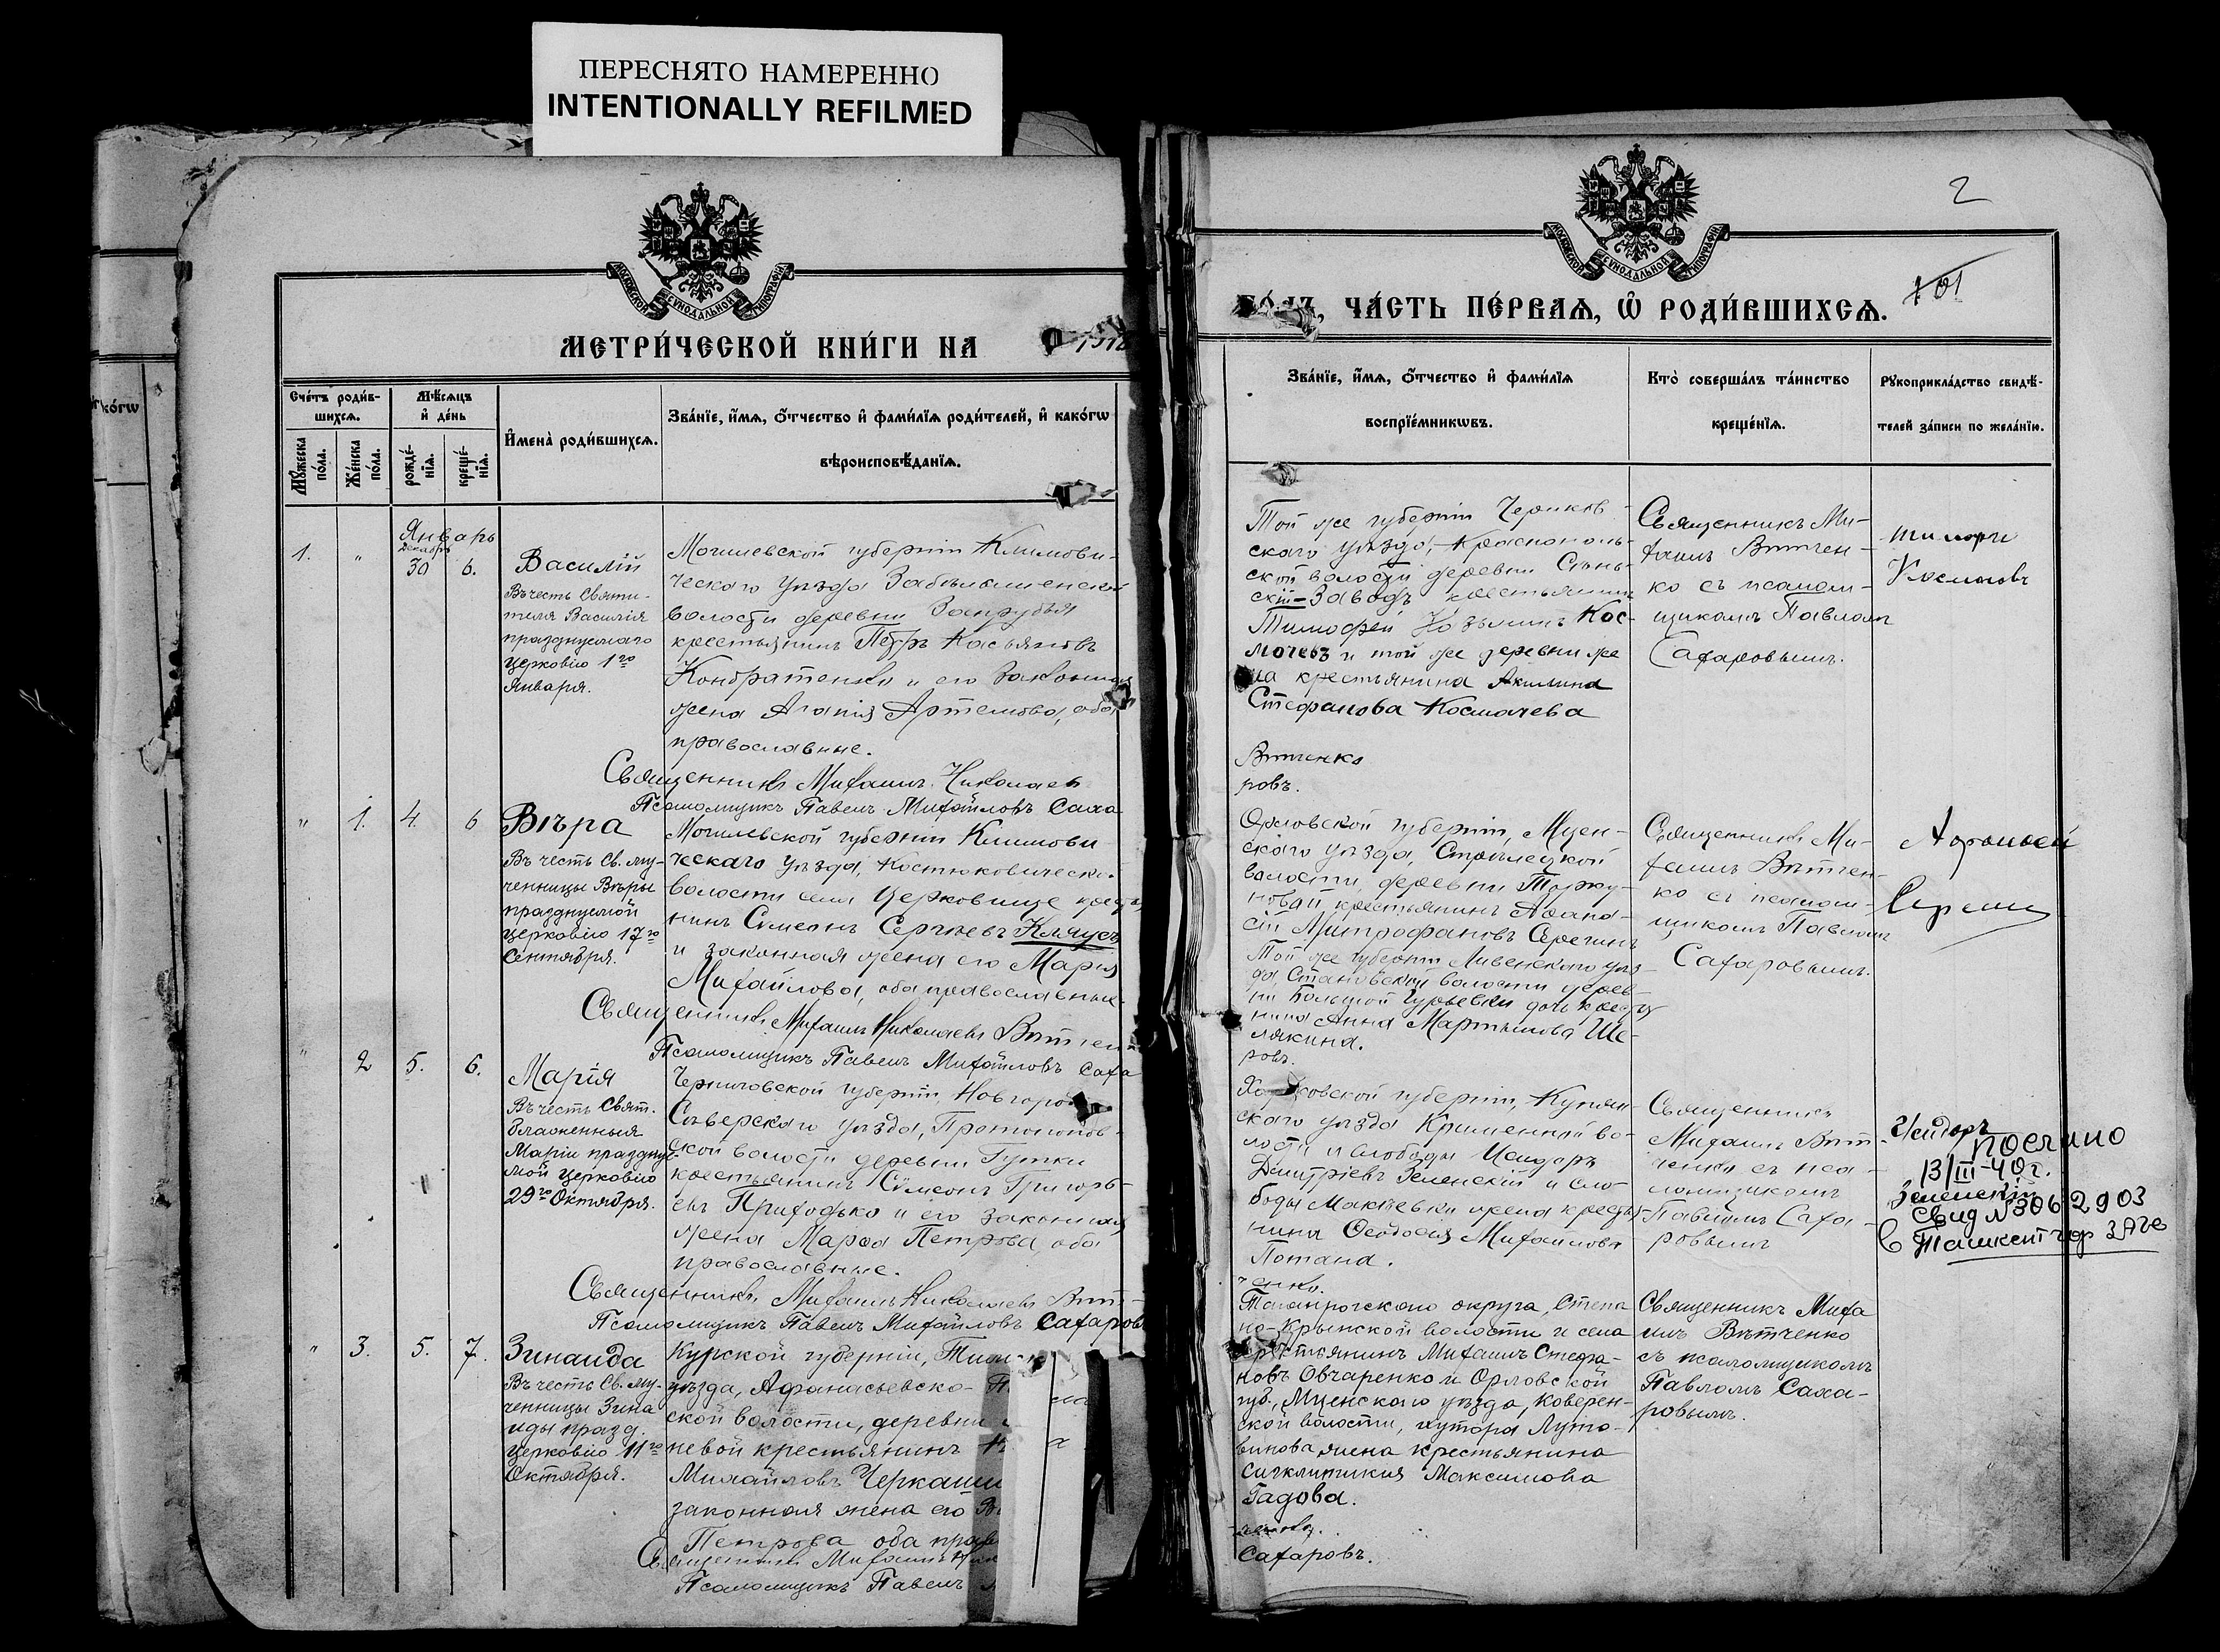 ПЕРЕСНЯТО НАМЕРЕННО
INTENTIONALLY REFILMED
МОСКОВСКОЙ СѴНОДАЛЬНОЙ ТИПОГРАФІИ
МЕТРИ́ЧЕСКОЙ КНИ́ГИ НА
Сче́тъ роди́в-
шихсѧ.
Мѣ́сѧцъ
и҆ де́нь
И҆мена̀ роди́вшихсѧ.
Зва́нїе, и҆́мѧ, ѻ҆́тчество и҆ фами́лїѧ роди́телей, и҆ како́гѡ
вѣроисповѣ́данїѧ.
Мꙋ́жеска
по́ла.
Же́нска
по́ла.
рожде́-
нїѧ.
креще́-
нїѧ.
Январь
Декабрь
1. " 30 6.
Василій
Въ честь Святи-
теля Василія
празднуемаго
церковію 1го
Января.
Могилевской губерніи Климови-
ческаго уѣзда
волости деревни
крестьянинъ Петръ Касьяновъ
Кондратенко и его законная
жена Агапія Артемова, оба
православные.
Священникъ Михаилъ Николаевъ
Псаломщикъ Павелъ Михайловъ Саха
" 1. 4. 6
Вѣра
Въ честь Св. му-
ченницы Вѣры
празднуемой
церковію 17го
Сентября.
Могилевской губерніи Климови
ческаго уѣзда, Костюковическо-
волости села Церковище
нинъ Симеонъ Сергѣевъ
и законная жена его Марія
Михайлова, оба православные.
Священникъ Михаилъ Николаевъ Вѣтчен
Псаломщикъ Павелъ Михайловъ Саха
" 2 5. 6.
Марія
Въ честь Свят.
блаженныя
Маріи празднуе-
мой церковію
29го Октября.
Черниговской губерніи Новгород
Сѣверскаго уѣзда,
ской волости деревни Гутки
крестьянинъ Сѵмеонъ Григорь-
евъ Приходько и его законная
жена Марѳа Петрова, оба
православные.
Священникъ Михаилъ Николаевъ Вѣт-
Псаломщикъ Павелъ Михайловъ Сахаровъ
" 3. 5. 7.
Зинаида
Въ честь Св. му-
ченницы Зина
иды празд.
церковію 11го
Октября.
Курской губерніи,
уѣзда, Афанасьевско-
ской волости, деревни
невой крестьянинъ
Михайловъ
законная жена его
Петрова оба прав
Священникъ Михаилъ
Псаломщикъ Павелъ
2
МОСКОВСКОЙ СѴНОДАЛЬНОЙ ТИПОГРАФІИ
101
ЧА́СТЬ ПЕ́РВАѦ, Ѡ҆ РОДИ́ВШИХСѦ.
Зва́нїе, и҆́мѧ, ѻ҆́тчество и҆ фами́лїѧ
воспрїе́мникѡвъ.
Кто̀ соверша́лъ та́инство
креще́нїѧ.
Рꙋкоприкла́дство свидѣ́-
телей за́писи по жела́нїю.
Той же губерніи Чериков-
скаго уѣзда, Краснополь-
ской волости деревни
Заводъ крестьянинъ
Тимофей Козьминъ Кос-
мачевъ и той же деревни же
на крестьянина Акилина
Стефанова Космачева
Вѣтченко
ровъ.
Священникъ Ми-
хаилъ Вѣтчен-
ко съ псалом-
щикомъ Павломъ
Сахаровымъ.
Орловской губерніи, Мцен-
скаго уѣзда, Стрѣлецкой
волости, деревни
новой крестьянинъ Аѳана-
сій Митрофановъ Серегинъ
Той же губерніи Ливенскаго уѣз-
да, Становской волости дерев-
ни Большой Гурьевки дочь кресть
нина Анна Мартынова Ше-
лякина.
ровъ.
Священникъ Ми-
хаилъ Вѣтчен-
ко съ псалом-
щикомъ Павломъ
Сахаровымъ.
Афонасей
Харьковской губерніи, Купян-
скаго уѣзда Кременной во-
лости и слободы Исидоръ
Дмитріевъ Зеленскій и сло-
боды Макѣевки жена кресть
нина Ѳеодосія Михайлова
Потапа.
ченко.
Священникъ
Михаилъ Вѣт
ченко съ пса-
ломщикомъ
Павломъ Саха-
ровымъ
13/III-40г.
Зеленскій
Таганрогскаго округа, Степа
но-Крынской волости и села
крестьянинъ Михаилъ Стефа-
новъ Овчаренко и Орловской
губ., Мценскаго уѣзда,
ской волости, хутора Луто-
винова жена крестьянина
Синклитикія Максимова
Гадова.
Сахаровъ.
Священникъ Миха
илъ Вѣтченко
съ псаломщикомъ
Павломъ Саха-
ровымъ.